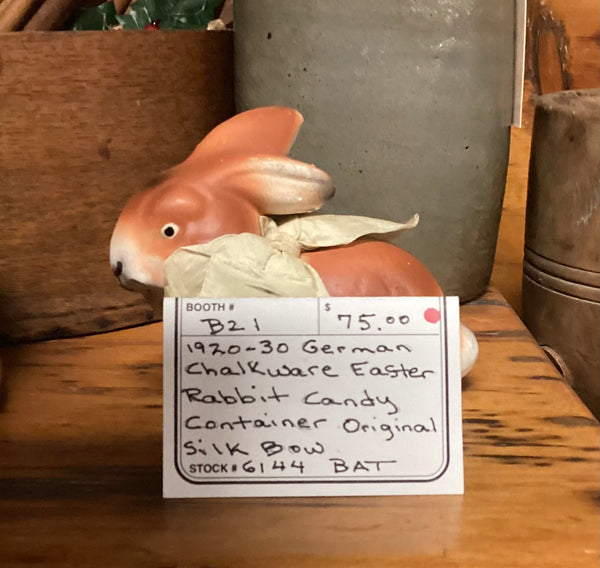 BOOTH # $
B21 75.00
1920-30 German
Chalkware Easter
Rabbit Candy
Container Original
Silk Bow
STOCK # 6144 BAT